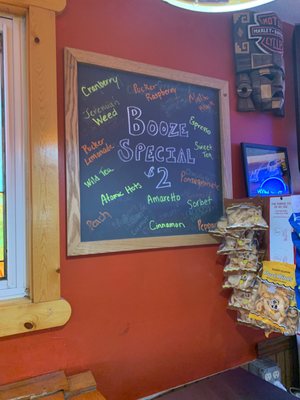 Cranberry
Pucker
Raspberry
Jeremiah
Weed
Booze
Special
$2
Espresso
Sweet
Tea
Pucker
Lemonade
Wild Tea
Pomegranate
Atomic Hots
Amaretto
Sorbet
Peach
Cinnamon
HARLEY-DAVIDSON
CYCLES